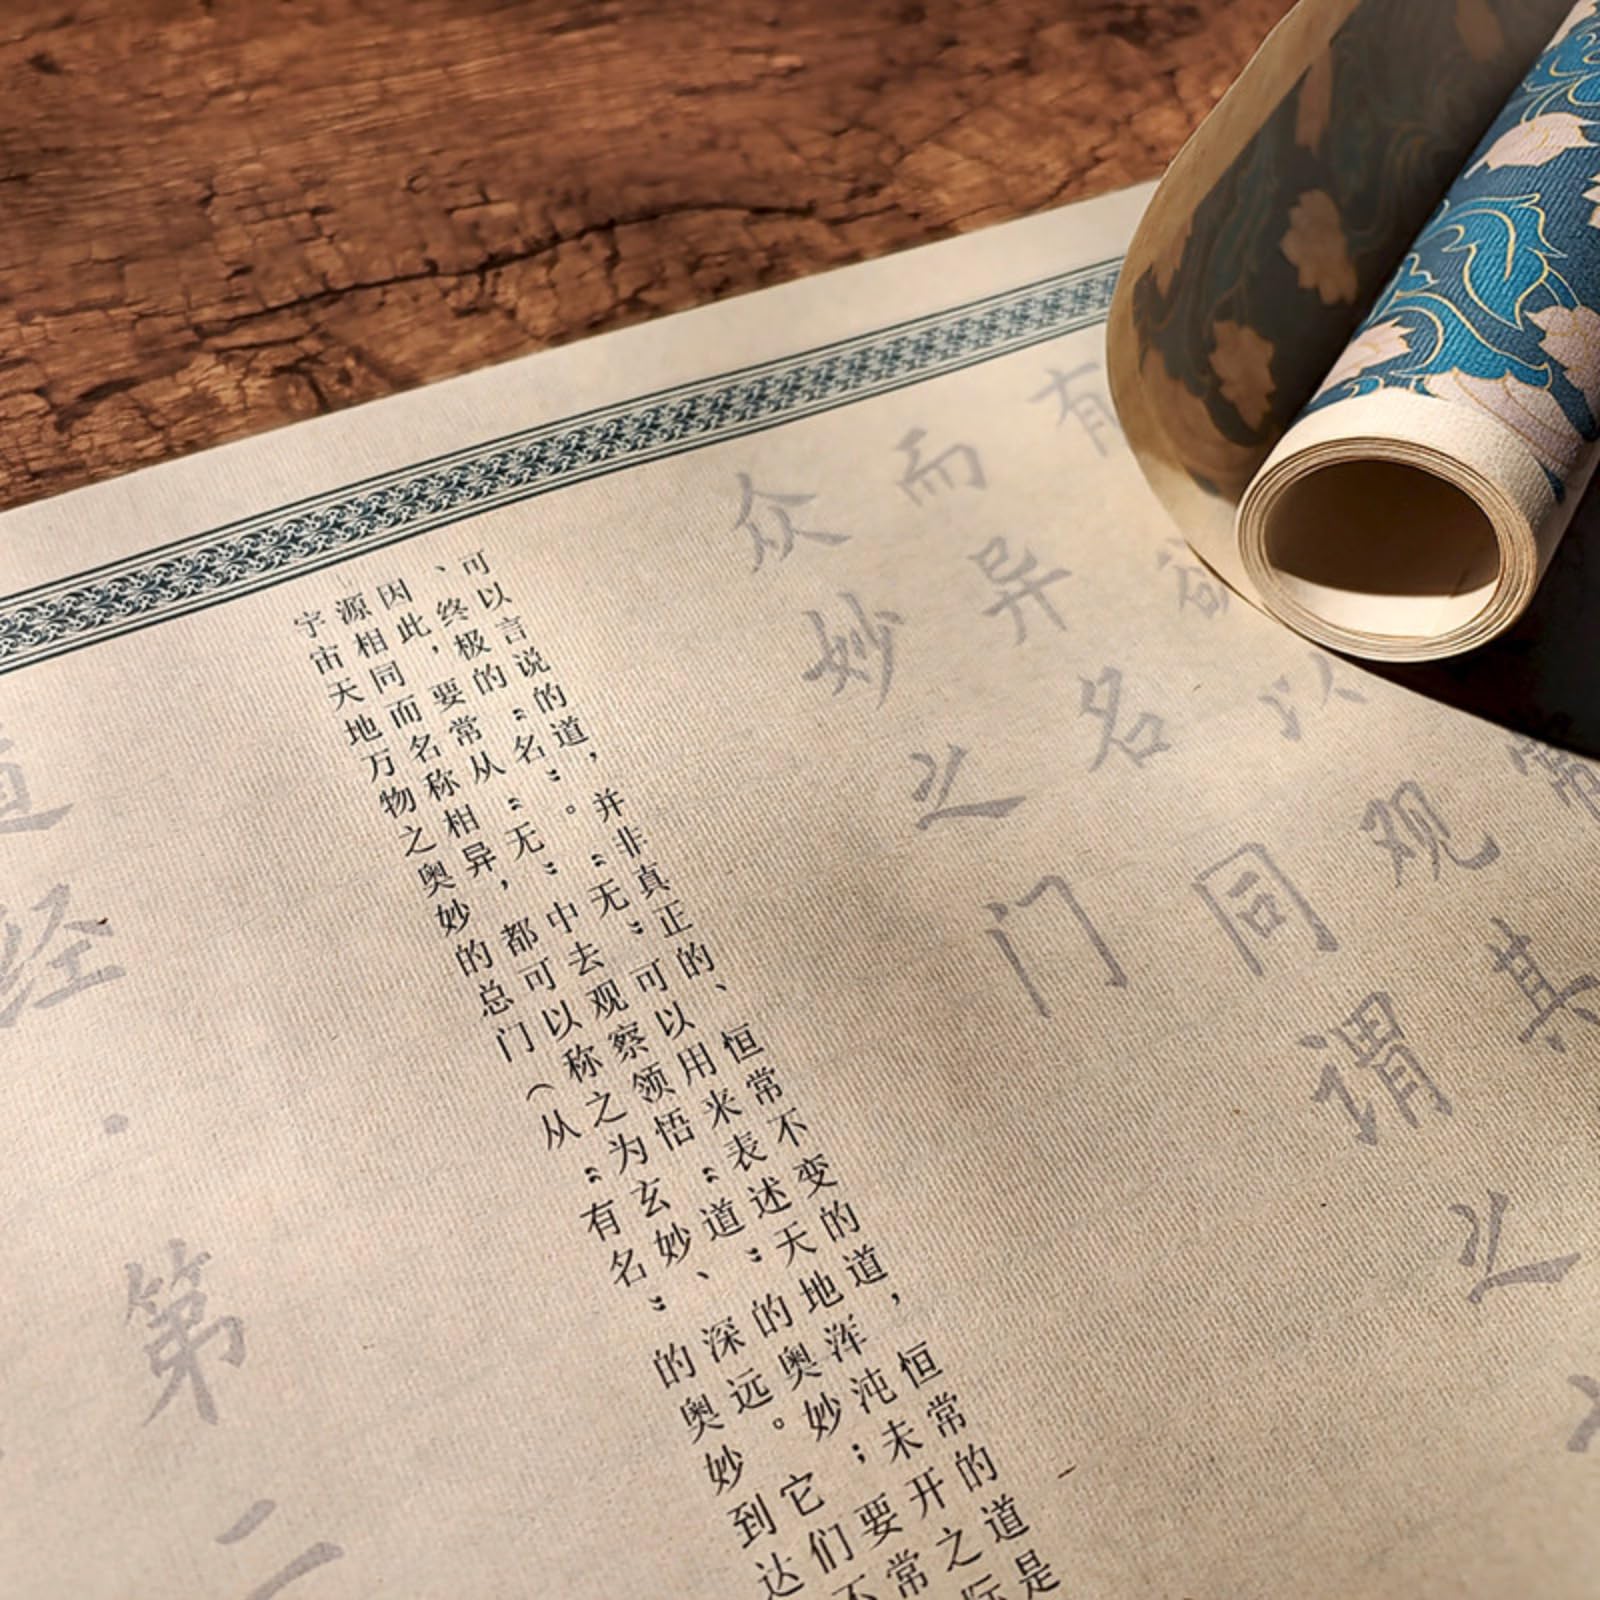 常
有欲以观其
而异名同谓之
众妙之门
可以言说的道，并非真正的、恒常不变的道，恒常的道是
、终极的“名”。“无”可以用来表述天地浑沌未开之际
因此，要常从“无”中去观察领悟“道”的奥妙；要常
源相同而名称相异，都可以称之为玄妙、深远。它们不
宇宙天地万物之奥妙的总门（从“有名”的奥妙到达
道经·第二